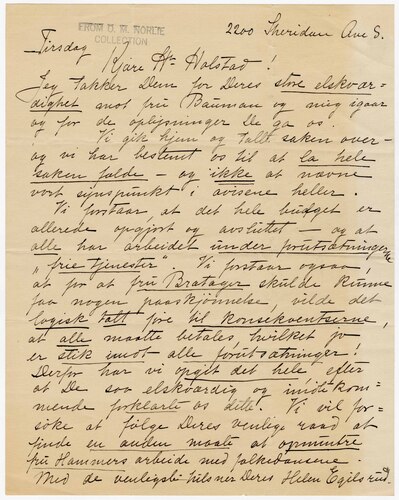 FROM O. M. NORLIE
COLLECTION
2200 Sheridan Ave S.
Tirsdag
Kjære Hr Holstad!
Jeg takker Dem for Deres store elskvær-
dighet mot fru Bauman og mig igaar
og for de oplysninger De ga os.
Vi gik hjem og talte saken over -
og vi har bestemt os til at la hele
saken falde - og ikke at nævne
vort synspunkt i avisene heller.
Vi forstaar, at det hele budget er
allerede opgjort og avsluttet - og at
alle har arbeidet under forutsætningerne
"frie tjenester" Vi forstaar ogsaa,
at for at fru Bratager skulde kunne
faa nogen paaskjønnelse, vilde det
logisk talt føre til konsekventserne,
at alle maatte betales, hvilket jo
er stik imot alle forutsætninger!
Derfor har vi opgit det hele, efter
at De saa elskværdig og imøtekom-
mende forklarte os dette. Vi vil for-
søke at følge Deres venlige raad at
finde en anden maate at opmuntre
fru Hammers arbeide med folkedansene.
Med de venligste hilsner Deres Helen Egilsrud.